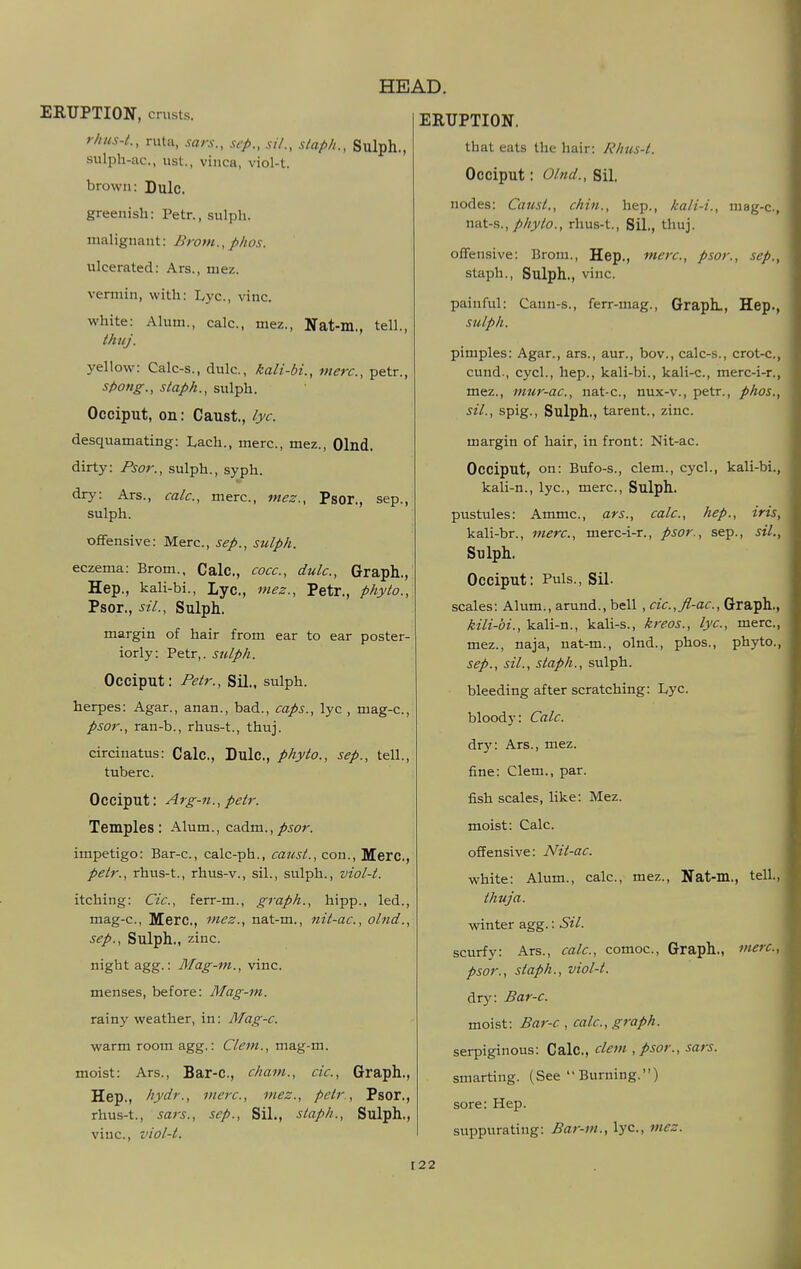 HEAD.
ERUPTION, crusts.
rhus-t., ruta, sars., sep., sil., staph., Sulph.,
sulph-ac., ust., vinca, viol-t.
brown: Dulc.
greenish: Petr., sulph.
malignant: Brom., phos.
ulcerated: Ars., mez.
vermin, with: Lyc., vinc.
white: Alum., calc., mez., Nat-m., tell.,
thuj.
yellow: Calc-s., dulc., kali-bi., merc., petr.,
spong., staph., sulph.
Occiput, on: Caust., lyc.
desquamating: Lach., merc., mez., Olnd.
dirty: Psor., sulph., syph.
dry: Ars., calc., merc., mez., Psor., sep.,
sulph.
offensive: Merc., sep., sulph.
eczema: Brom., Calc., cocc., dulc., Graph.,
Hep., kali-bi., Lyc., mez., Petr., phyto.,
Psor., sil., Sulph.
margin of hair from ear to ear poster-
iorly: Petr,. sulph.
Occiput: Petr., Sil., sulph.
herpes: Agar., anan., bad., caps., lyc , mag-c.,
psor., ran-b., rhus-t., thuj.
circinatus: Calc., Dulc., phyto., sep., tell.,
tuberc.
Occiput: Arg-n., petr.
Temples: Alum., cadm., psor.
impetigo: Bar-c., calc-ph., caust., con., Merc.,
petr., rhus-t., rhus-v., sil., sulph., viol-t.
itching: Cic., ferr-m., graph., hipp., led.,
mag-c., Merc., mez., nat-m., nit-ac., olnd.,
sep., Sulph., zinc.
night agg.: Mag-m., vinc.
menses, before: Mag-m.
rainy weather, in: Mag-c.
warm room agg.: Clem., mag-m.
moist: Ars., Bar-c., cham., cic., Graph.,
Hep., hydr., merc., mez., petr., Psor.,
rhus-t., sars., sep., Sil., staph., Sulph.,
vinc., viol-t.
ERUPTION.
that eats the hair: Rhus-t.
Occiput: Olnd., Sil.
nodes: Caust., chin., hep., kali-i., mag-c.,
nat-s., phyto., rhus-t., Sil., thuj.
offensive: Brom., Hep., merc., psor., sep.,
staph., Sulph., vinc.
painful: Cann-s., ferr-mag., Graph., Hep.,
sulph.
pimples: Agar., ars., aur., bov., calc-s., crot-c.,
cund., cycl., hep., kali-bi., kali-c., merc-i-r.,
mez., mur-ac., nat-c., nux-v., petr., phos.,
sil., spig., Sulph., tarent., zinc.
margin of hair, in front: Nit-ac.
Occiput, on: Bufo-s., clem., cycl., kali-bi.,
kali-n., lyc., merc., Sulph.
pustules: Ammc., ars., calc., hep., iris,
kali-br., merc., merc-i-r., psor., sep., sil.,
Sulph.
Occiput: Puls., Sil.
scales: Alum., arund., bell , cic., fl-ac., Graph.,
kili-bi., kali-n., kali-s., kreos., lyc., merc.,
mez., naja, nat-m., olnd., phos., phyto.,
sep., sil., staph., sulph.
bleeding after scratching: Lyc.
bloody: Calc.
dry: Ars., mez.
fine: Clem., par.
fish scales, like: Mez.
moist: Calc.
offensive: Nit-ac.
white: Alum., calc., mez., Nat-m., tell.,
thuja.
winter agg.: Sil.
scurfy: Ars., calc., comoc., Graph., merc.,
psor., staph., viol-t.
dry: Bar-c.
moist: Bar-c , calc., graph.
serpiginous: Calc., clem , psor., sars.
smarting. (See "Burning.")
sore: Hep.
suppurating: Bar-m., lyc., mez.
122